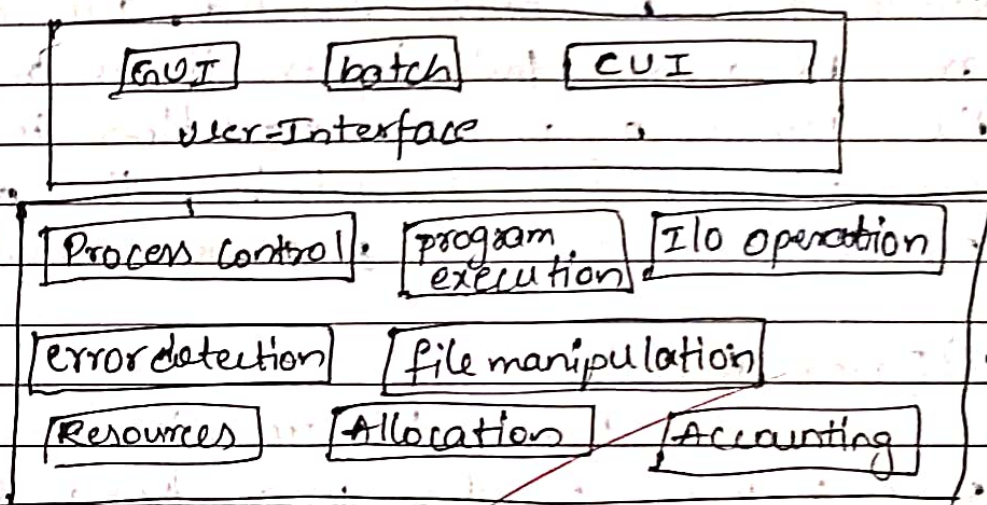 GUI batch CUI
User-Interface
Process Control. program execution I/O operation
error detection file manipulation
Resources Allocation Accounting